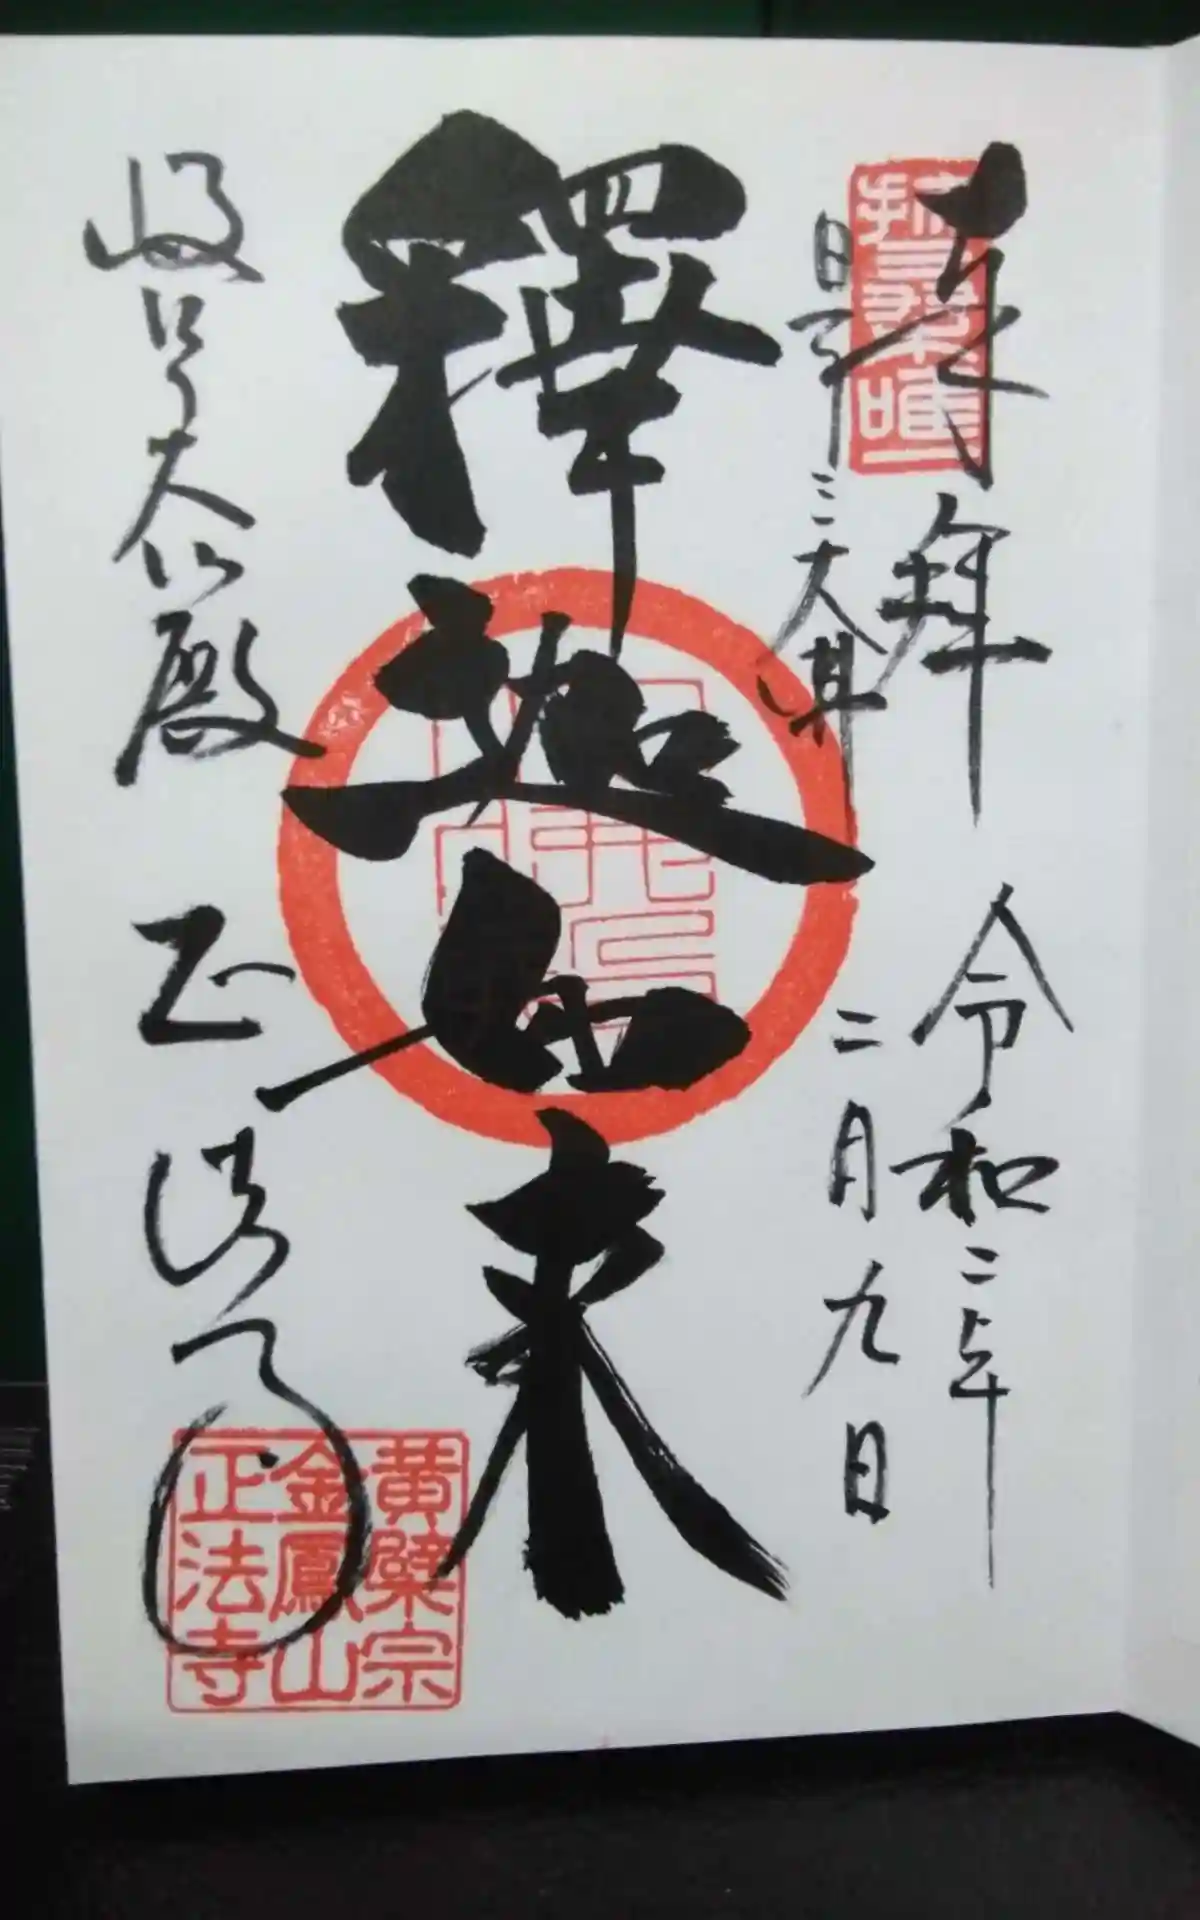 奉拝
令和二年
二月九日
日本
三大佛
釋迦如来
岐阜大仏殿
正法寺
黄檗宗
金鳳山
正法寺